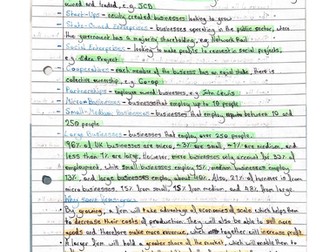 owned and leaded, e.g. JCB
Start-Ups - newly created businesses looking to grow
State-Owned Enterprises - businesses operating in the public sector, where
the government has a majority shareholding, eg Network Rail
Social Enterprises - looking to make profits to reinvest in social projects,
eg Eden Project
Cooperatives - each member of the business has an equal stake, there is
collective ownership, e.g. Co-op
Partnerships - employee owned businesses, e.g. John Lewis
Micro-Businesses - businesses that employ up to 10 people
Small-Medium Businesses - businesses that employ anywhere between 10 and
250 people
Large Businesses - businesses that employ over 250 people.
96% of UK businesses are micro, 3% are small, 1% are medium, and
less than 1% are large. However, micro businesses only account for 33% of
employment, while small businesses employ 15%, medium businesses employ
12%, and large businesses employ about 40%. Also, 21% of turnover is from
micro businesses, 15% from small, 15% from medium, and 48% from large.
Key some firms grow
By growing, a firm will take advantage of economies of scale which helps them
to decrease their costs of production. They will also be able to sell more
goods and therefore make more revenue, which together will increase profit.
A larger firm will hold a greater share of the market, which will enable them to